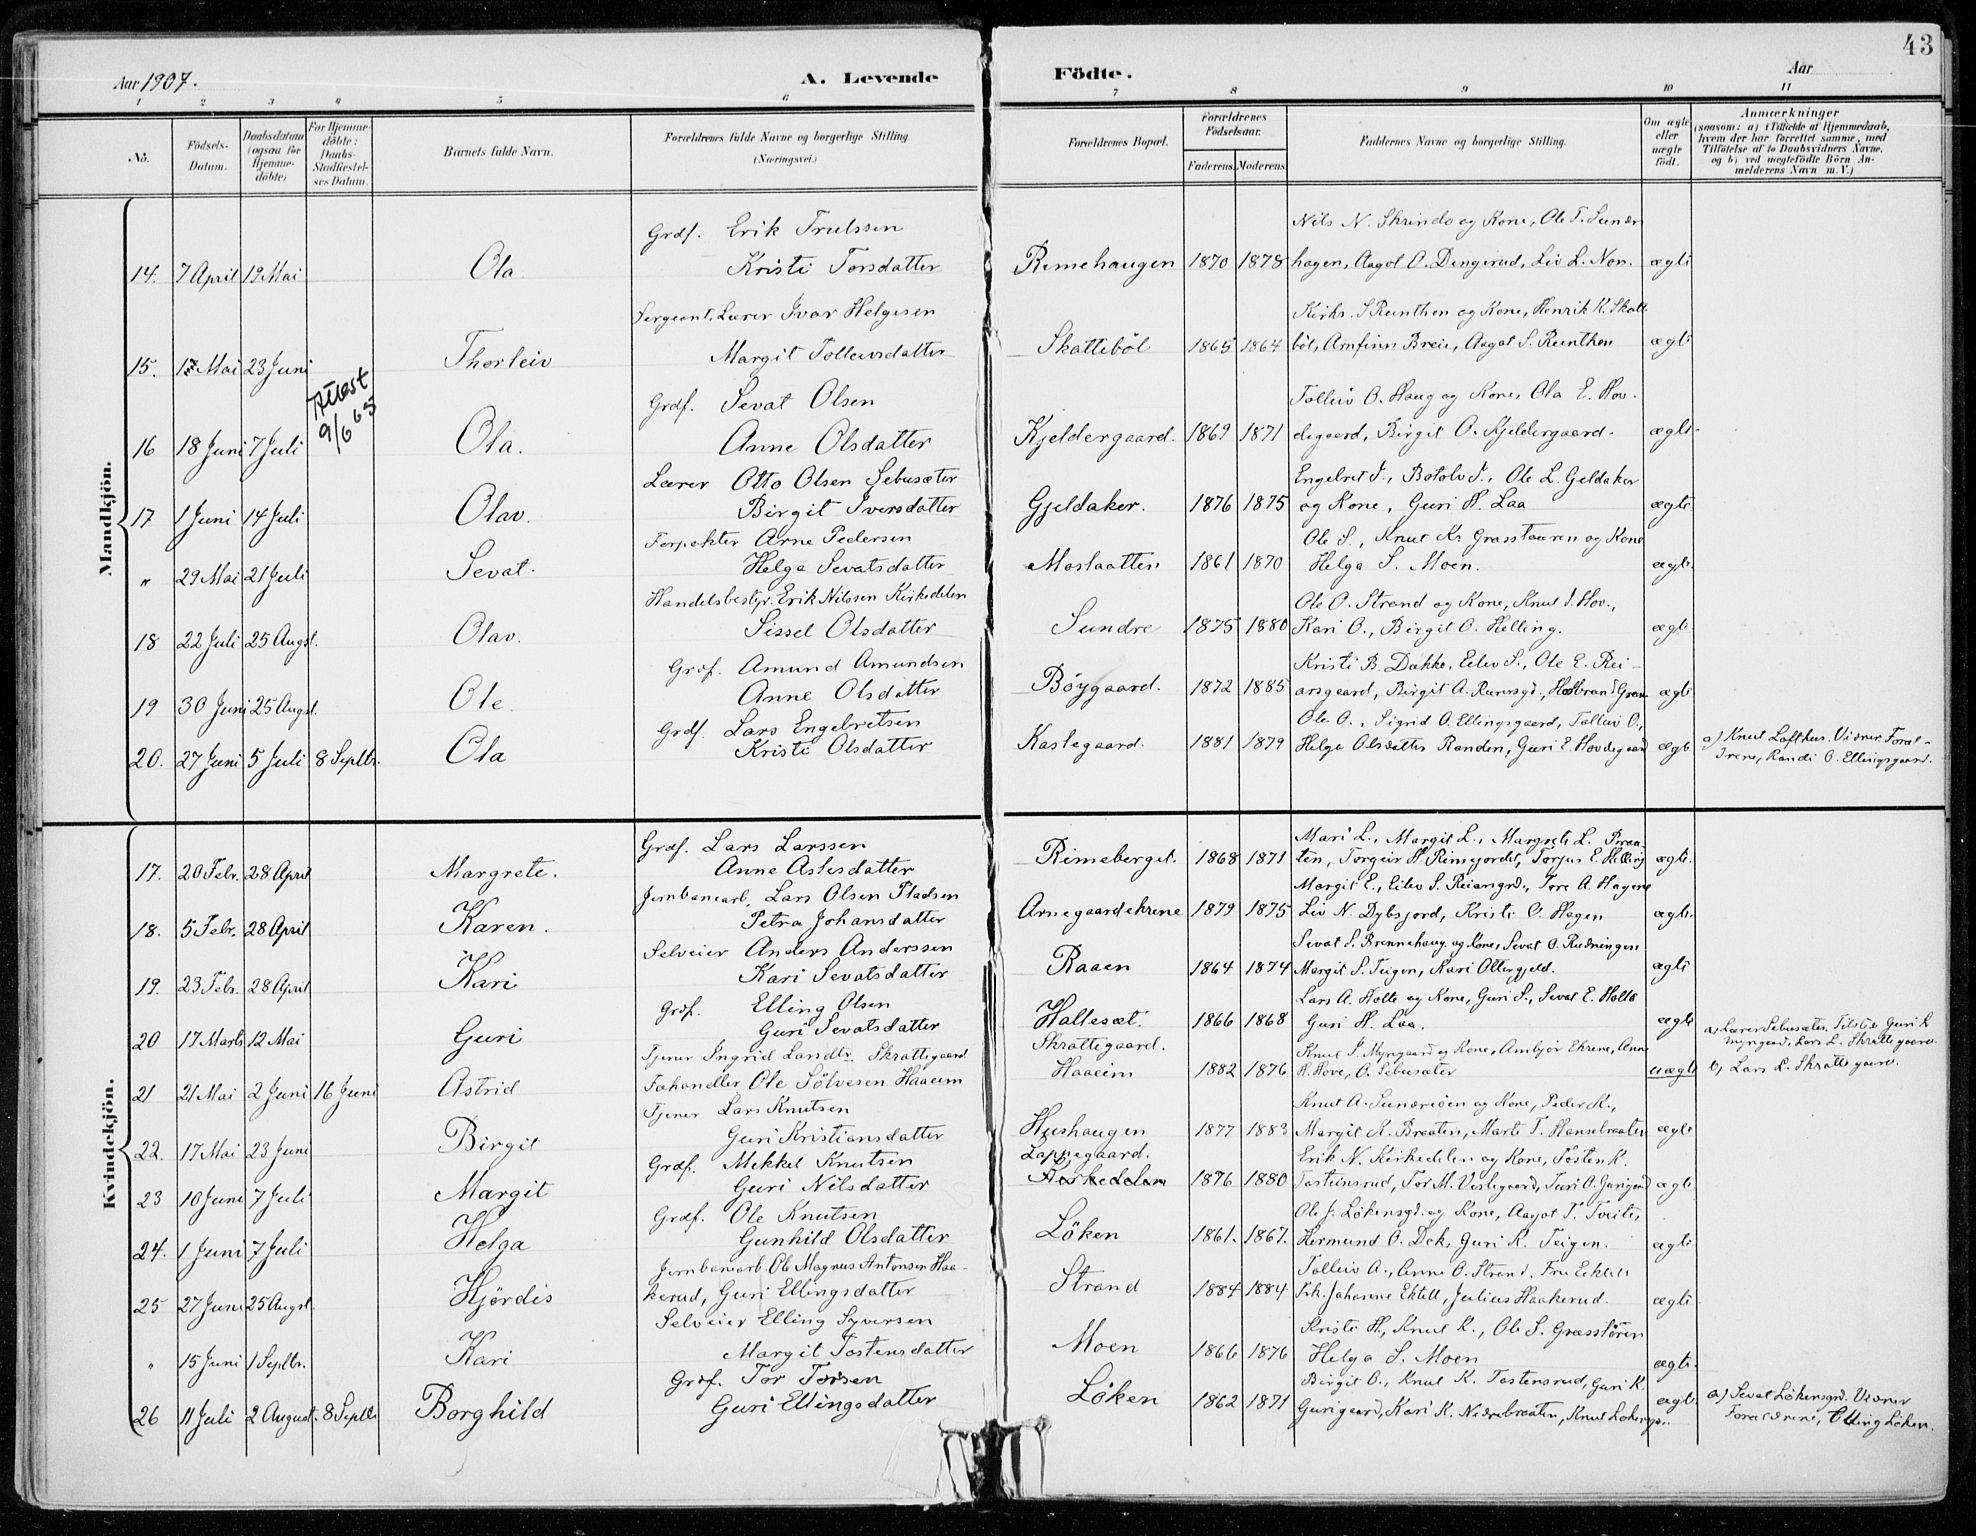 43
Aar 1907.
A. Levende Födte.
Aar
1 2 3 4 5 6 7 8 9 10 11
No.
Födsels-Datum.
Daabsdatum (ogsaa for Hjemme-döbte)
For Hjemme-döbte: Daabs-Stadfæstel-ses Datum.
Barnets fulde Navn.
Forældrenes fulde Navne og borgerlige Stilling. (Næringsvei.)
Forældrenes Bopæl.
Forældrenes Födselsaar.
Faderens. Moderens.
Faddernes Navne og borgerlige Stilling.
Om ægte eller uægte födt.
Anmærkninger
(saasom: a) i Tilfælde af Hjemmedaab, hvem der har forrettet samme, med Tilföielse af to Daabsvidners Navne, og b) ved uægtefödte Börn An-melderens Navn m. V.)
Mandkjön.
Grdf. Erik Trulssen Nils N. Skrindo og Kone, Ole T. Sunder
14. 7 April 19 Mai Ola. Kristi Torsdatter Rimehaugen 1870 1878 hagen, Aagot O. Dengerud, Liv L. Nos. ægte
Sergeant, Lærer Ivar Helgesen Kirks. S Reinthon og Kone, Henrik K. Skatte
15. 17 Mai 23 Juni Thorleiv Margit Tolleivsdatter Skattebøl 1865 1864 bøl, Arnfinn Breie, Aagot S. Reinthon ægte
Attest 9/6 65
Grdf. Sevat Olsen Tolleiv O. Haug og Kone, Ola E. Hov-
16 18 Juni 7 Juli Ola. Anne Olsdatter Kjeldergaard. 1869 1871 degaard, Birgit O. Kjeldergaard. ægte
Lærer Otto Olsen Sebusæter Engebret T., Botolv T., Ole L. Geldaker
17 1 Juni 14 Juli Olav. Birgit Iversdatter Gjeldaker. 1876 1875 og Kone, Guri H. Laa ægte
Forpakter Arne Pedersen Ole S., Knut K. Grasstøuren og Kone
" 29 Mai 21 Juli Sevat. Helga Sevatsdatter Moslaatten 1861 1870 Helga S. Moen. ægte
Handelsbestyr. Erik Nilssen Kirkedelen Ole O. Strand og Kone, Knut T. Hov.,
18 22 Juli 25 Augst. Olav. Sissel Olsdatter Sundre 1875 1880 Kari O., Birgit O. Helling. ægte
Grdf. Amund Amundsen Kristi B. Dokke, Eilev S., Ole E. Rei-
19 30 Juni 25 Augst. Ole. Anne Olsdatter Böygaard. 1872 1885 arsgaard, Birgit A. ægte
Grdf. Lars Engebretsen Ole O., Sigrid O. Ellingsgaard, Tolleiv O.,
20. 27 Juni 5 Juli 8 Septbr. Ola Kristi Olsdatter Kastegaard. 1881 1879 Helga Olsdatter Randen, Guri E. Hovdegaard ægte a) Knut Lofthus. Vidner: Foræl-
drene, Randi O. Ellingsgaard.
Kvindekjön.
Grdf. Lars Larssen Mari L., Margit L., Margrete L. Braa-
17. 20 Febr. 28 April Margrete. Anne Aslesdatter Rimeberget. 1868 1871 ten, Torgeir H. Rimejordet, Torjus E. Helling ægte.
Jernbanearb. Lars Olsen Pladsen Margit E., Eilev S. Reiarsgrd., Tore A. Hagene
18. 5 Febr. 28 April Karen. Petra Johansdatter Arnegaardekrene 1879 1875 Liv N. Dybsjord, Kristi O. Hagen ægte.
Selveier Anders Anderssen Sevat S. Brennehaug og Kone, Sevat O. Rudningen
19. 23 Febr. 28 April Kari Kari Sevatsdatter Raaen 1864 1874 Margit S. Teigen, Kari Ottergjeld. ægte
Grdf. Elling Olsen Lars A. Holte og Kone, Guri S., Sevat E. Holto
20 17 Marts 12 Mai Guri Guri Sevatsdatter Hallesæt. 1866 1868 Guri H. Laa. ægte a) Lærer Sebusæter. Guri K
Myngaard, Lars L. Skrattegaard.
Tjener Ingrid Landtr. Skrattegaard Skrattegaard. Knut T. Myngaard og Kone, Ambjør Ekrene, Anne
21 21 Mai 2 Juni 16 Juni Astrid Fæhandler Ole Sölvesen Haaeim Haaeim 1882 1876 H. Hove, O. Sebusæter uægte b) Lars L. Skrattegaard.
Tjener Lars Knutsen Knut A. og Kone, Peder K.,
22. 17 Mai 23 Juni Birgit Guri Kristiansdatter Hushaugen 1877 1883 Margit K. Braaten, Marte T. Hansebraaten ægte
Grdf. Mekkel Knutsen Lappegaard. Erik N. Kirkedelen og Kone, Tosten K.
23 10 Juni 7 Juli Margit Guri Nilsdatter Kirkedelen 1876 1880 Tosteinsrud, Tor M. Veslegaard, Turi O. ægte
Grdf. Ole Knutsen Ole J. Lökensgd. og Kone, Aagot T. Tveito,
24. 1 Juni 7 Juli Helga Gunhild Olsdatter Löken 1861. 1867. Hermund O. Dek, Guri K. Teigen. ægte
Jernbanearb. Ole Magnus Antonsen Haa- Tolleiv A., Anne O. Strand, Fru Ektell
25 27 Juni 25 Augst. Hjördis kerud, Guri Ellingsdatter Strand 1884 1884 Frk. Johanne Ektell, Julius Haakerud. ægte
Selveier Elling Syversen Kristi H., Knut K., Ole S. Grasstören
" 15 Juni 1 Septbr. Kari Margit Tostensdatter Moen 1866 1876 Helga S. Moen ægte.
Grdf. Tor Torsen Birgit O., Knut K. Tostensrud, Guri K.
26 11 Juli 2 August. 8 Septbr. Borghild Guri Ellingsdatter Löken 1862 1871 Gurigaard, Kari K. Nidrebraaten, Knut ægte. a) Sevat Lökensgrd. Vidner
Forældrene, Elling Löken.